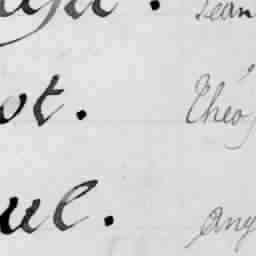 Jean
ot. Théo
ue. Ang